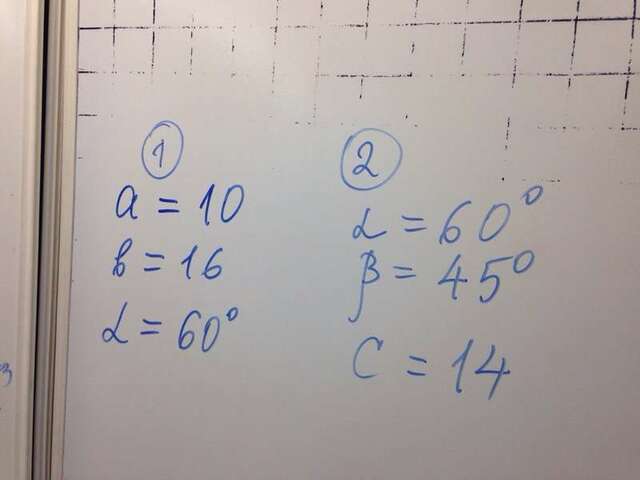 1
a = 10
b = 16
α = 60°
2
α = 60°
β = 45°
C = 14